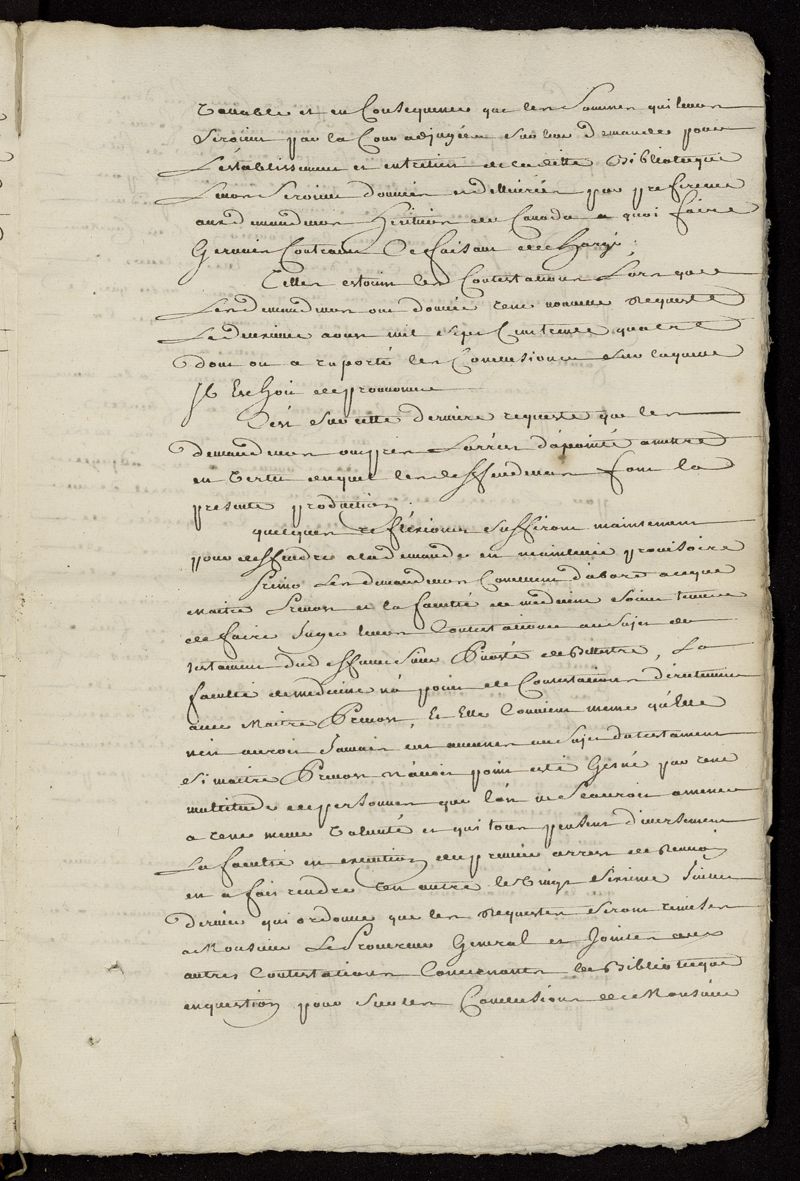 tenable et en Consequence que les Sommes qui leurs
Seroient par la Cour adjugées Sur leur demande pour
L'établissement et entretien de la ditte Bibliotecque
Leurs Seroient données et dellivrées par preference
aux demandeurs Heritiers de Canada a quoi faire
Gerusin Contraint Deffaisant de charge.
Telles estoient les Contestations Lorsque
Les demandeurs ont donnée une nouvelle Requeste
Le deuxieme aoust mil Sept Cent trente quatre
dont on a raporté les Conclusions Sur laquelle
Il Eschoit de prononcer
C'est Sur cette derniere requeste que les
demandeurs ont pris L'arrest d'apointé a mettre
en vertu duquel les deffendeurs font la
presente production.
quelques reflexions Suffiront maintenant
pour deffendre a la demande en maintenüe provisoire
Primo Les demandeurs Conviennent d'abord que
Maitre Prevost et la faculté de medecine Soient tenues
de faire Juger leurs Contestations au Sujet du
testament dud deffunt Sieur Picoté de Bellestre, La
faculté de medecine n'a point de Contestations d'éterminée
avec Maitre Prevost, Et Elle Convient meme qu'elle
n'en auroit Jamais eu aucunes au Sujet du testament
Si maitre Prevost n'avoit point esté Gesné par une
multitude de personnes que l'on ne Scauroit amener
a une meme Volonté et qui tous pensent diversement
La faculté en execution du premier arrest de Renvoi
en a fait rendre Un autre le Vingt Sixieme Juin
dernier qui ordonne que les Requestes Seront remises
a Monsieur Le Procureur General et Jointes aux
autres Contestations Concernantes la Bibliotecque
en question pour Sur les Conclusions de Monsieur